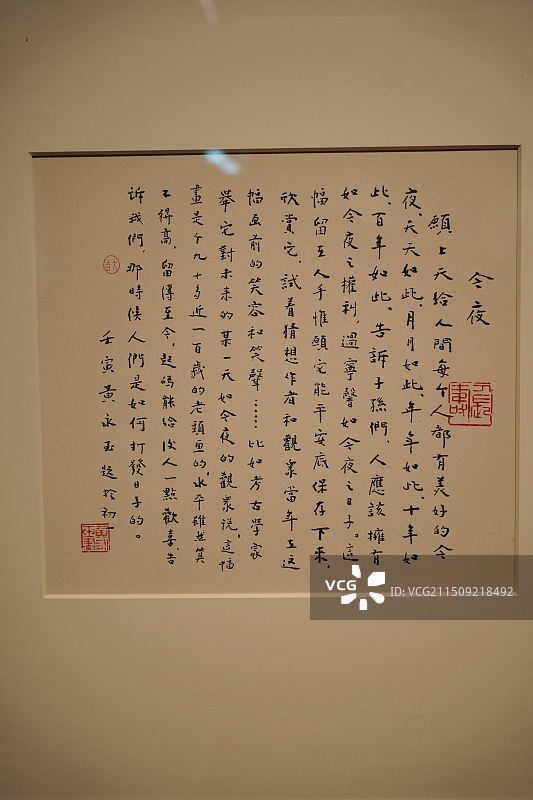 今夜
願上天給人間每個人都有美好的今
夜、天天如此、月月如此、年年如此、十年如
此、百年如此。告訴子孫們、人應該擁有
如今夜之權利、過寧馨如今夜之日子。這
幅留在人手惟願它能平安底保存下來、
欣賞它、試着猜想作者和觀衆當年在這
幅畫前的笑容和笑聲……比如考古學家
舉它對未來的某一天如今夜的觀衆說、這幅
畫是個九十多近一百歲的老頭畫的、水平雖然算
不得高、留傳至今、起碼能給後人一點歡喜告
訴我們、那時候人們是如何打發日子的。
壬寅黃永玉題於初一
VCG
ID: VCG211509218492